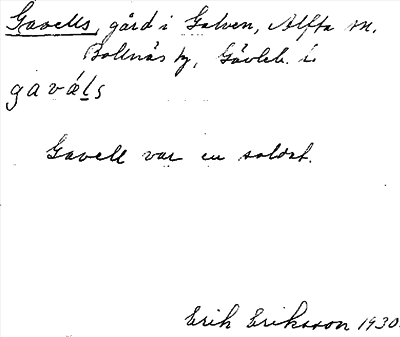 Gavells, gård i Galven, Alfta sn.
Bollnäs kp, Gävleb. l.
gaváls
Gavell var en soldat.
Erik Eriksson 1930.